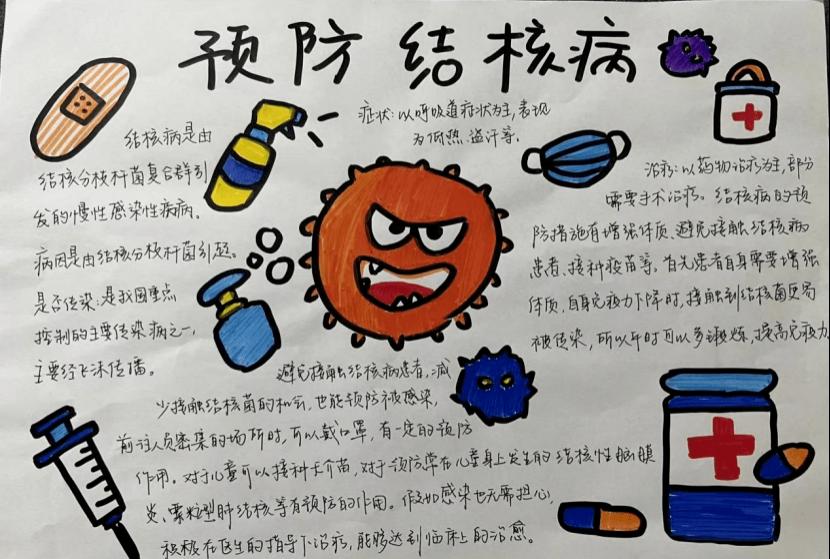 预防结核病
症状:以呼吸道症状为主,表现
为低热、盗汗等.
结核病是由
结核分枝杆菌复合群引
发的慢性感染性疾病。
病因是由结核分枝杆菌引起。
是否传染:是我国重点
控制的主要传染病之一,
主要经飞沫传播。
治疗:以药物治疗为主,部分
需要手术治疗。结核病的预
防措施有增强体质、避免接触结核病
患者、接种疫苗等。首先患者自身需要增强
体质,自身免疫力下降时,接触到结核菌更易
被传染,所以平时可以多锻炼,提高免疫力
避免接触结核病患者,减
少接触结核菌的机会,也能预防被感染,
前往人员密集的场所时,可以戴口罩,有一定的预防
作用。对于儿童可以接种卡介苗,对于预防常在儿童身上发生的结核性脑膜
炎、粟粒型肺结核等有预防的作用。假如感染也无需担心,
积极在医生的指导下治疗,能够达到临床上的治愈。